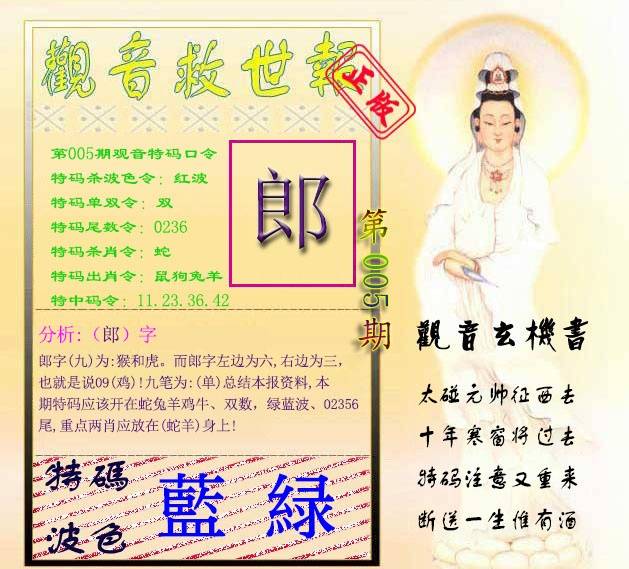 觀音救世報
正版
第005期观音特码口令
特码杀波色令：红波
特码单双令：双
特码尾数令：0236
特码杀肖令：蛇
特码出肖令：鼠狗兔羊
特中码令：11.23.36.42
郎
第005期
分析:（郎）字
郎字(九)为:猴和虎。而郎字左边为六,右边为三,
也就是说09(鸡)!九笔为:(单)总结本报资料,本
期特码应该开在蛇兔羊鸡牛、双数，绿蓝波、02356
尾,重点两肖应放在(蛇羊)身上!
特碼
波色
藍 緑
觀音玄機書
太碰元帅征西去
十年寒窗将过去
特码注意又重来
断送一生惟有酒